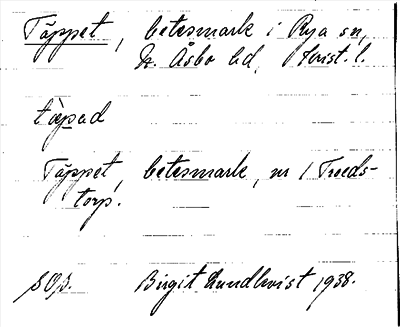 Täppet, betesmark i Rya sn,
N. Åsbo hd, Krist. l.
täpad
Täppet, betesmark, nr 1 Treeds-
torp.
Birgit Lundkvist 1938.